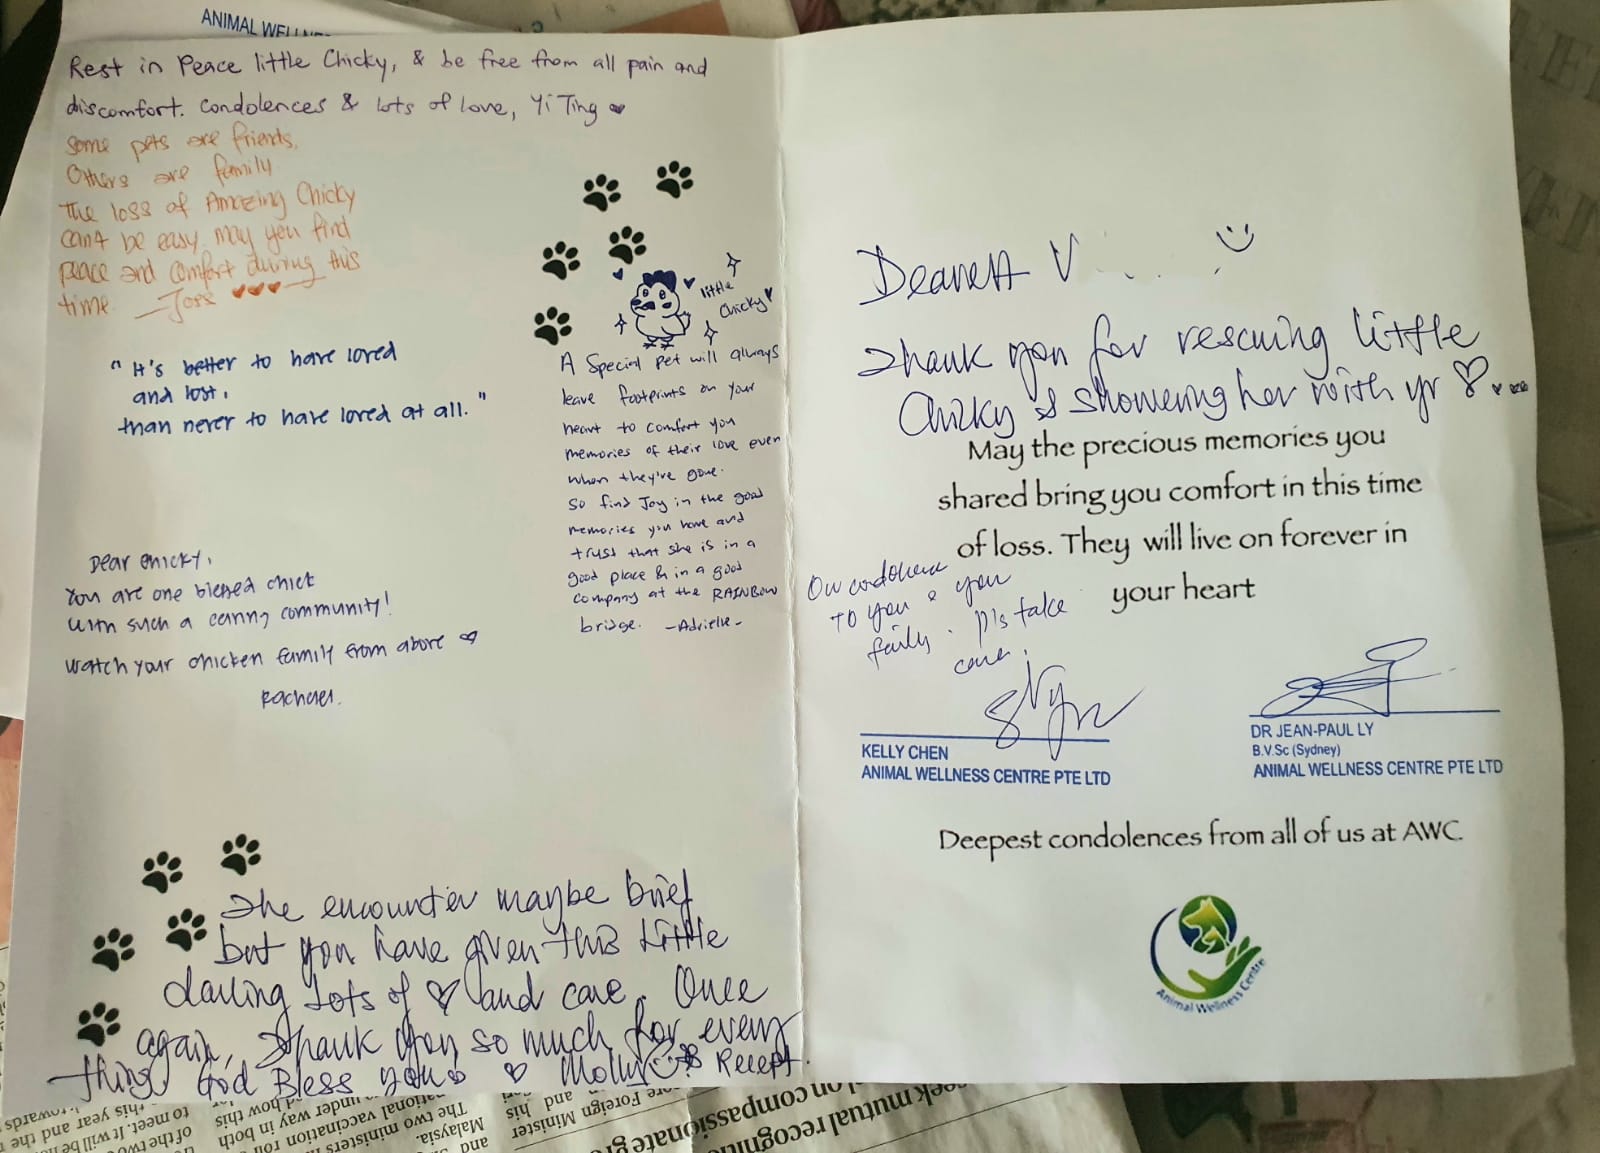 ANIMAL WELLNE
Rest in Peace little Chicky, & be free from all pain and
discomfort. Condolences & lots of love, Yi Ting
Some pets are friends,
Others are family
The loss of Amazing Chicky
can't be easy. may you find
peace and comfort during this
time. - Joss
"It's better to have loved
and lost,
than never to have loved at all."
Dear Chicky,
You are one blessed chick
with such a caring community!
Watch your chicken family from above
Rachael.
little
Chicky
A Special Pet will always
leave footprints on your
heart to comfort you
memories of their love even
when they're gone.
So find Joy in the good
memories you have and
trust that she is in a
good place & in a good
company at the RAINBOW
bridge. -Adrielle-
The encounter maybe brief
but you have given this little
darling lots of and care. Once
again, Thank you so much for every
thing. God Bless you Molly & Recept.
Dearest V
Thank you for rescuing little
Chicky & showering her with yr
May the precious memories you
shared bring you comfort in this time
of loss. They will live on forever in
your heart
Our condolence
to you & your
family. Pls take
care.
KELLY CHEN
ANIMAL WELLNESS CENTRE PTE LTD
DR JEAN-PAUL LY
B.V.Sc (Sydney)
ANIMAL WELLNESS CENTRE PTE LTD
Deepest condolences from all of us at AWC.
Animal Wellness Centre
eek mutual recogniti
on compassionate gr
ore Foreign Minister
and his
and
Malaysia.
The two ministers
national vaccination
under way in both
how this
to meet. It will be
this year and the
towards